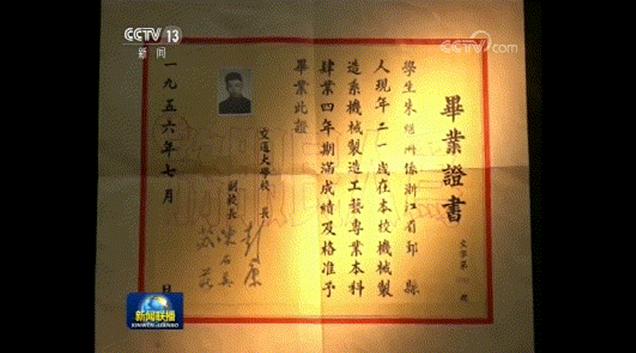 CCTV 13
新闻
CCTV.com
畢業證書
文字第 號
學生朱繼洲係浙江省鄞縣
人現年二一歲在本校機械製
造系機械製造工藝專業本科
肄業四年期滿成績及格准予
畢業此證
交通大學校長 彭康
副校長 陳石英
蘇莊
一九五六年七月 日
新闻联播
XINWEN LIANBO